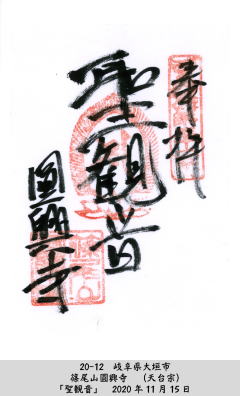 奉拝
聖観音
圓興寺
20-12 岐阜県大垣市
篠尾山圓興寺 (天台宗)
「聖観音」 2020年11月15日